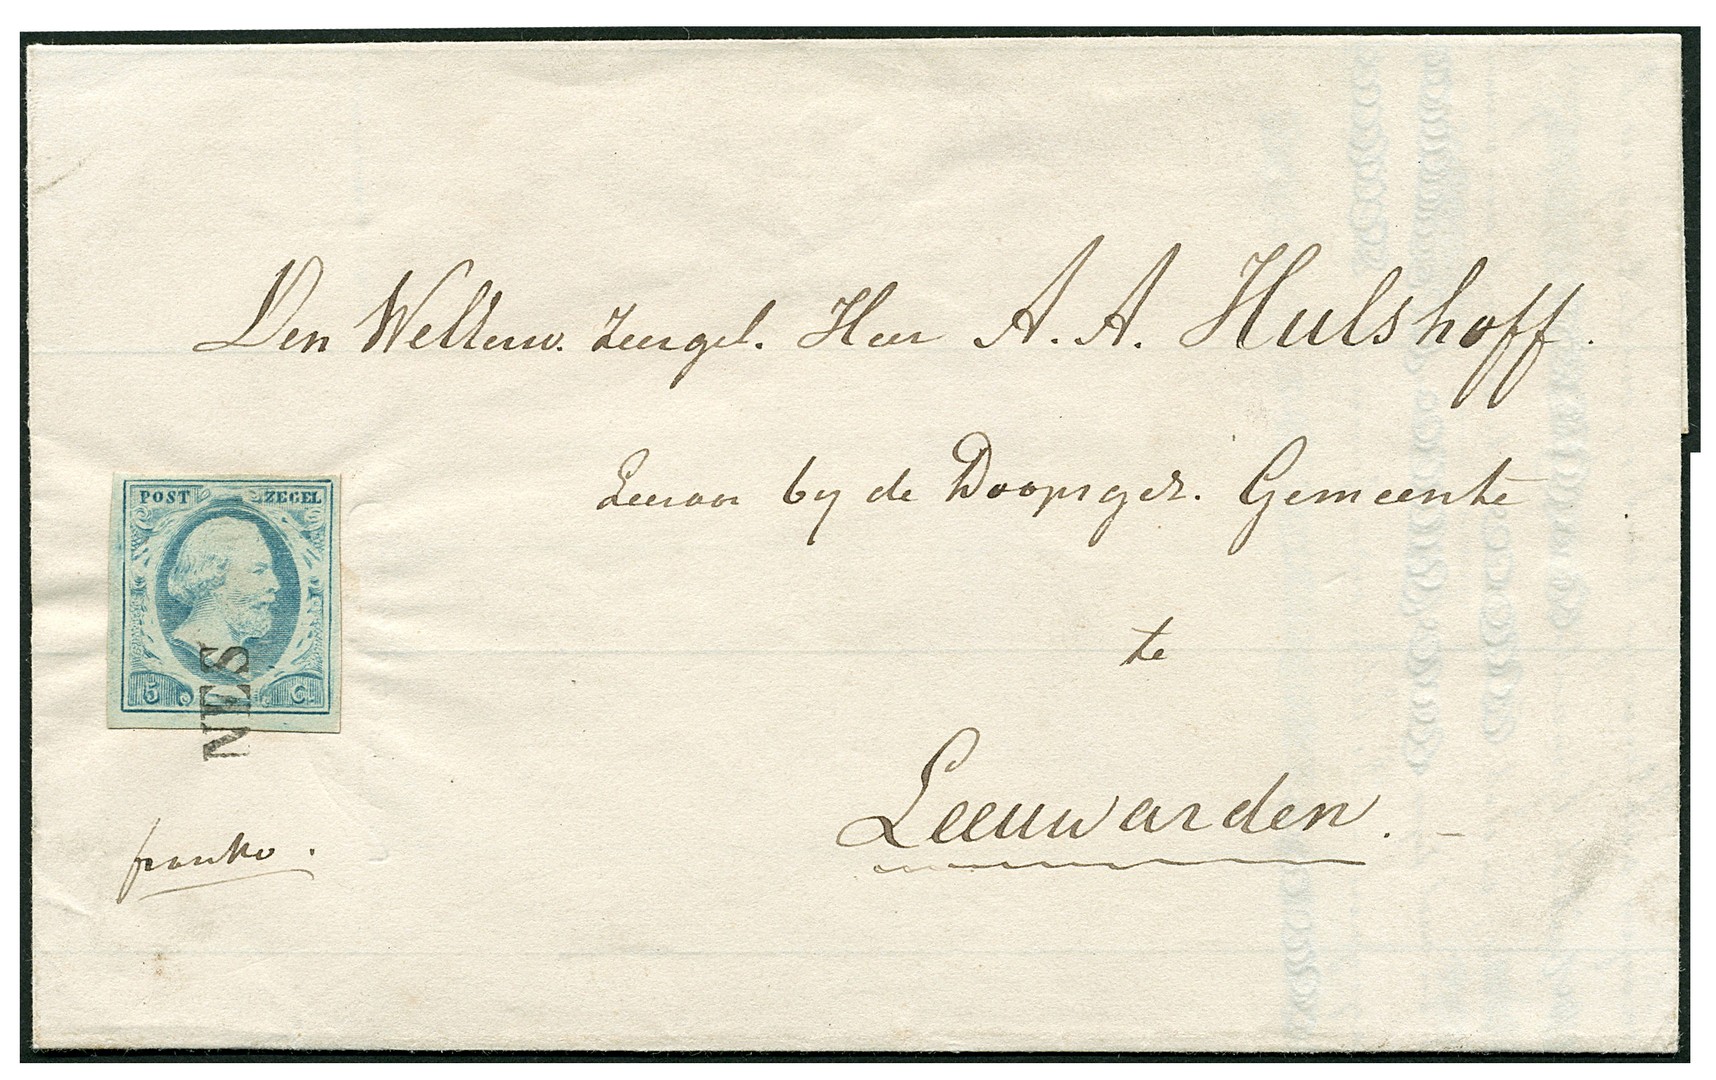 Den Weleerw. Zeergel. Heer A. A. Hulshoff.
Leeraar by de Doopsgez. Gemeente
te
Leeuwarden.
POST ZEGEL
5 C.
NES
franko.